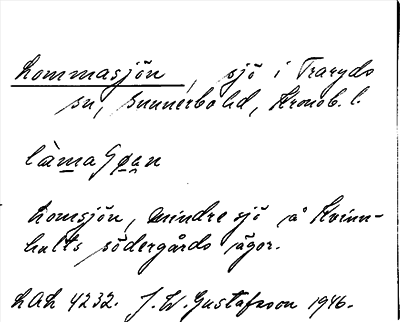 Lommasjön, sjö i Traryds
sn, Sunnerbo hd, Kronob. l.
làmaʃøan
Lomsjön, mindre sjö å Kvinn-
hults södergårds ägor.
LAL 4232. J. W. Gustafsson 1946.